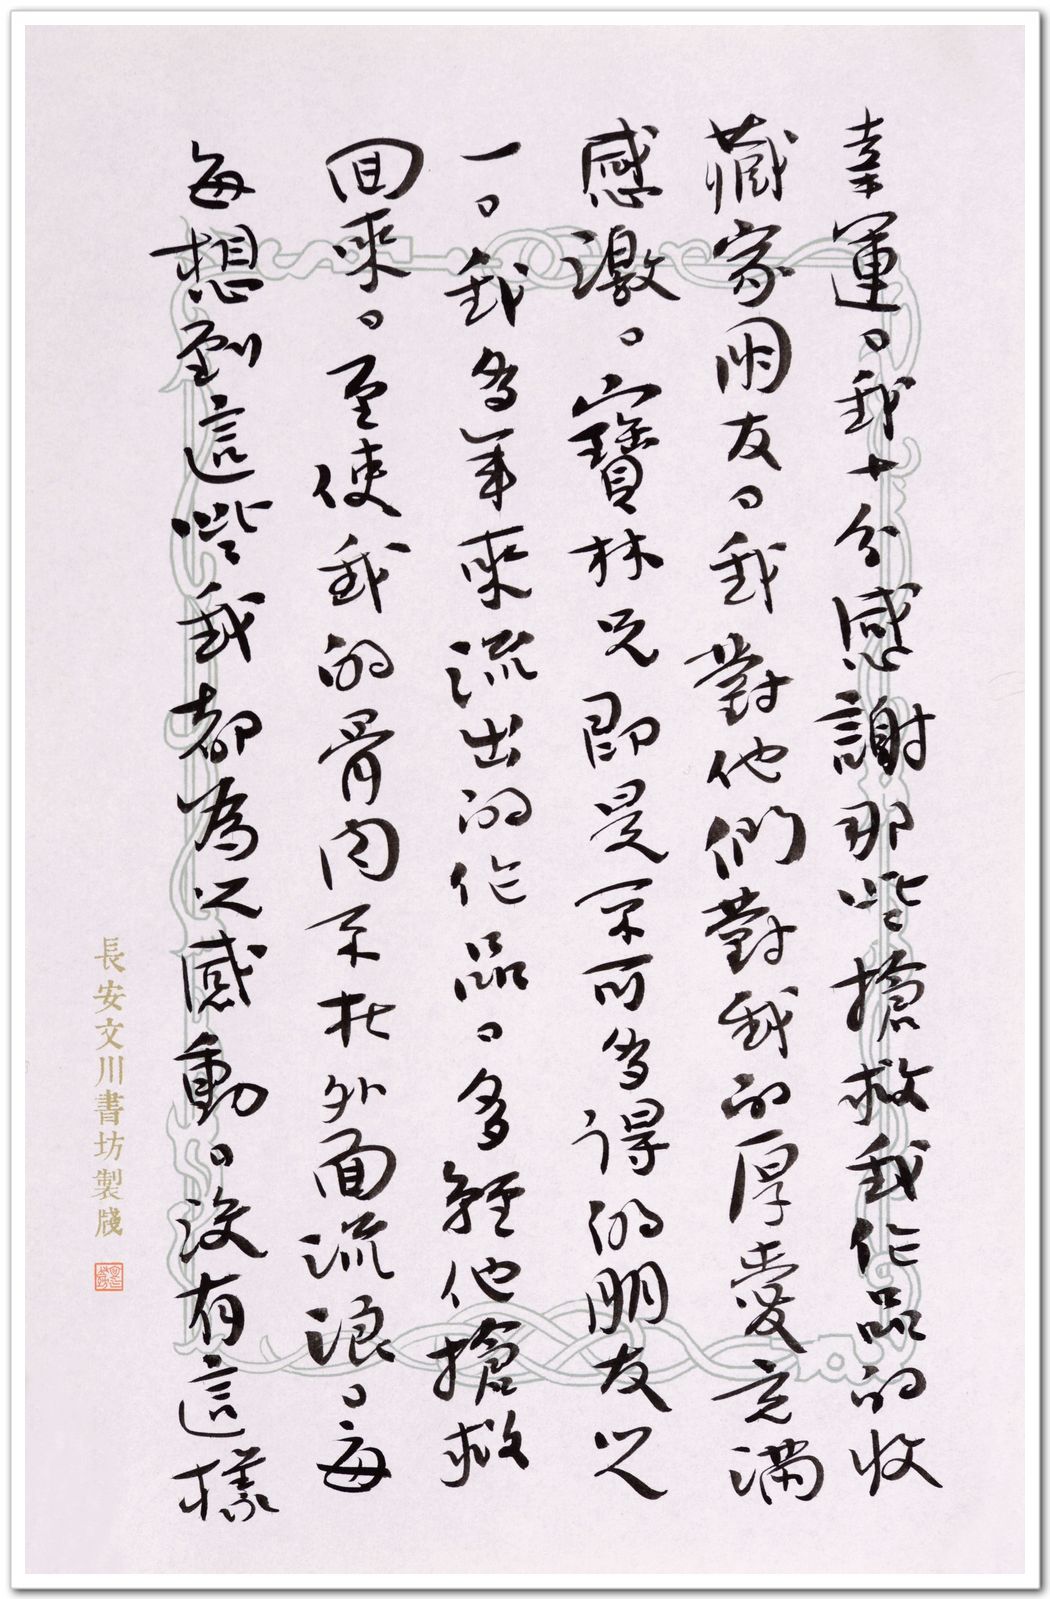 幸運。我十分感謝那些搶救我作品的收
藏家朋友。我對他們對我的厚愛充滿
感激。寶林兄即是突可多得的朋友之
一。我多年來流出的作品。多經他搶救
回來。至使我的骨肉不在外面流浪。每
每想到這些我都為之感動。沒有這樣
長安文川書坊製牋